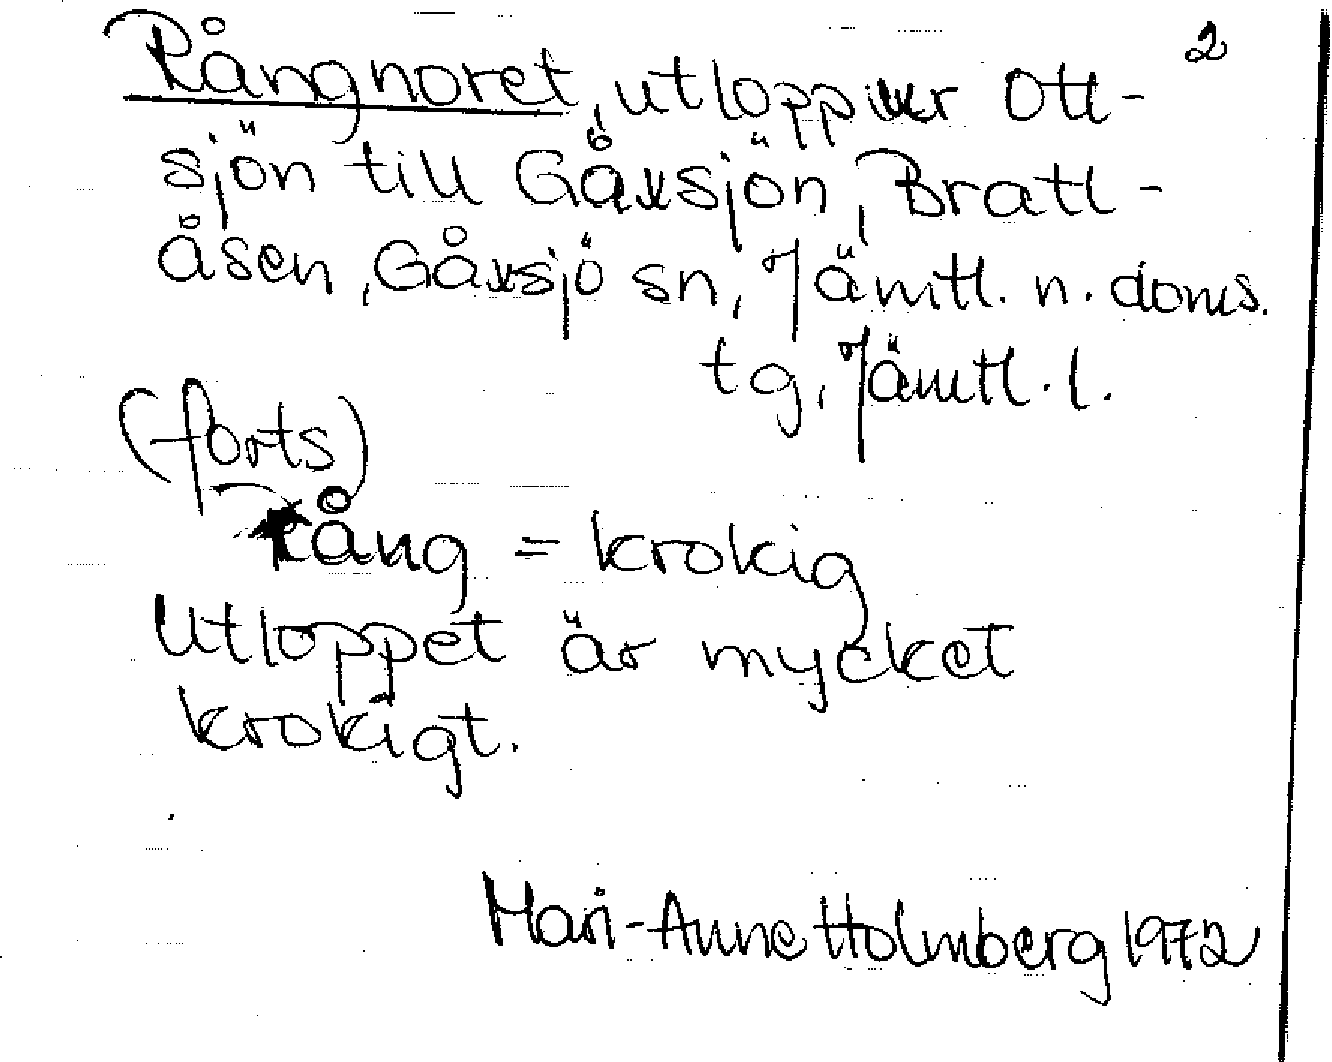 2
Rångnoret, utlopp ur Ott-
sjön till Gåxsjön, Bratt-
åsen, Gåxsjö sn, Jämtl. n. doms.
tg, Jämtl. l.
(forts)
rång = krokig
Utloppet är mycket
krokigt.
Mari-Anne Holmberg 1972